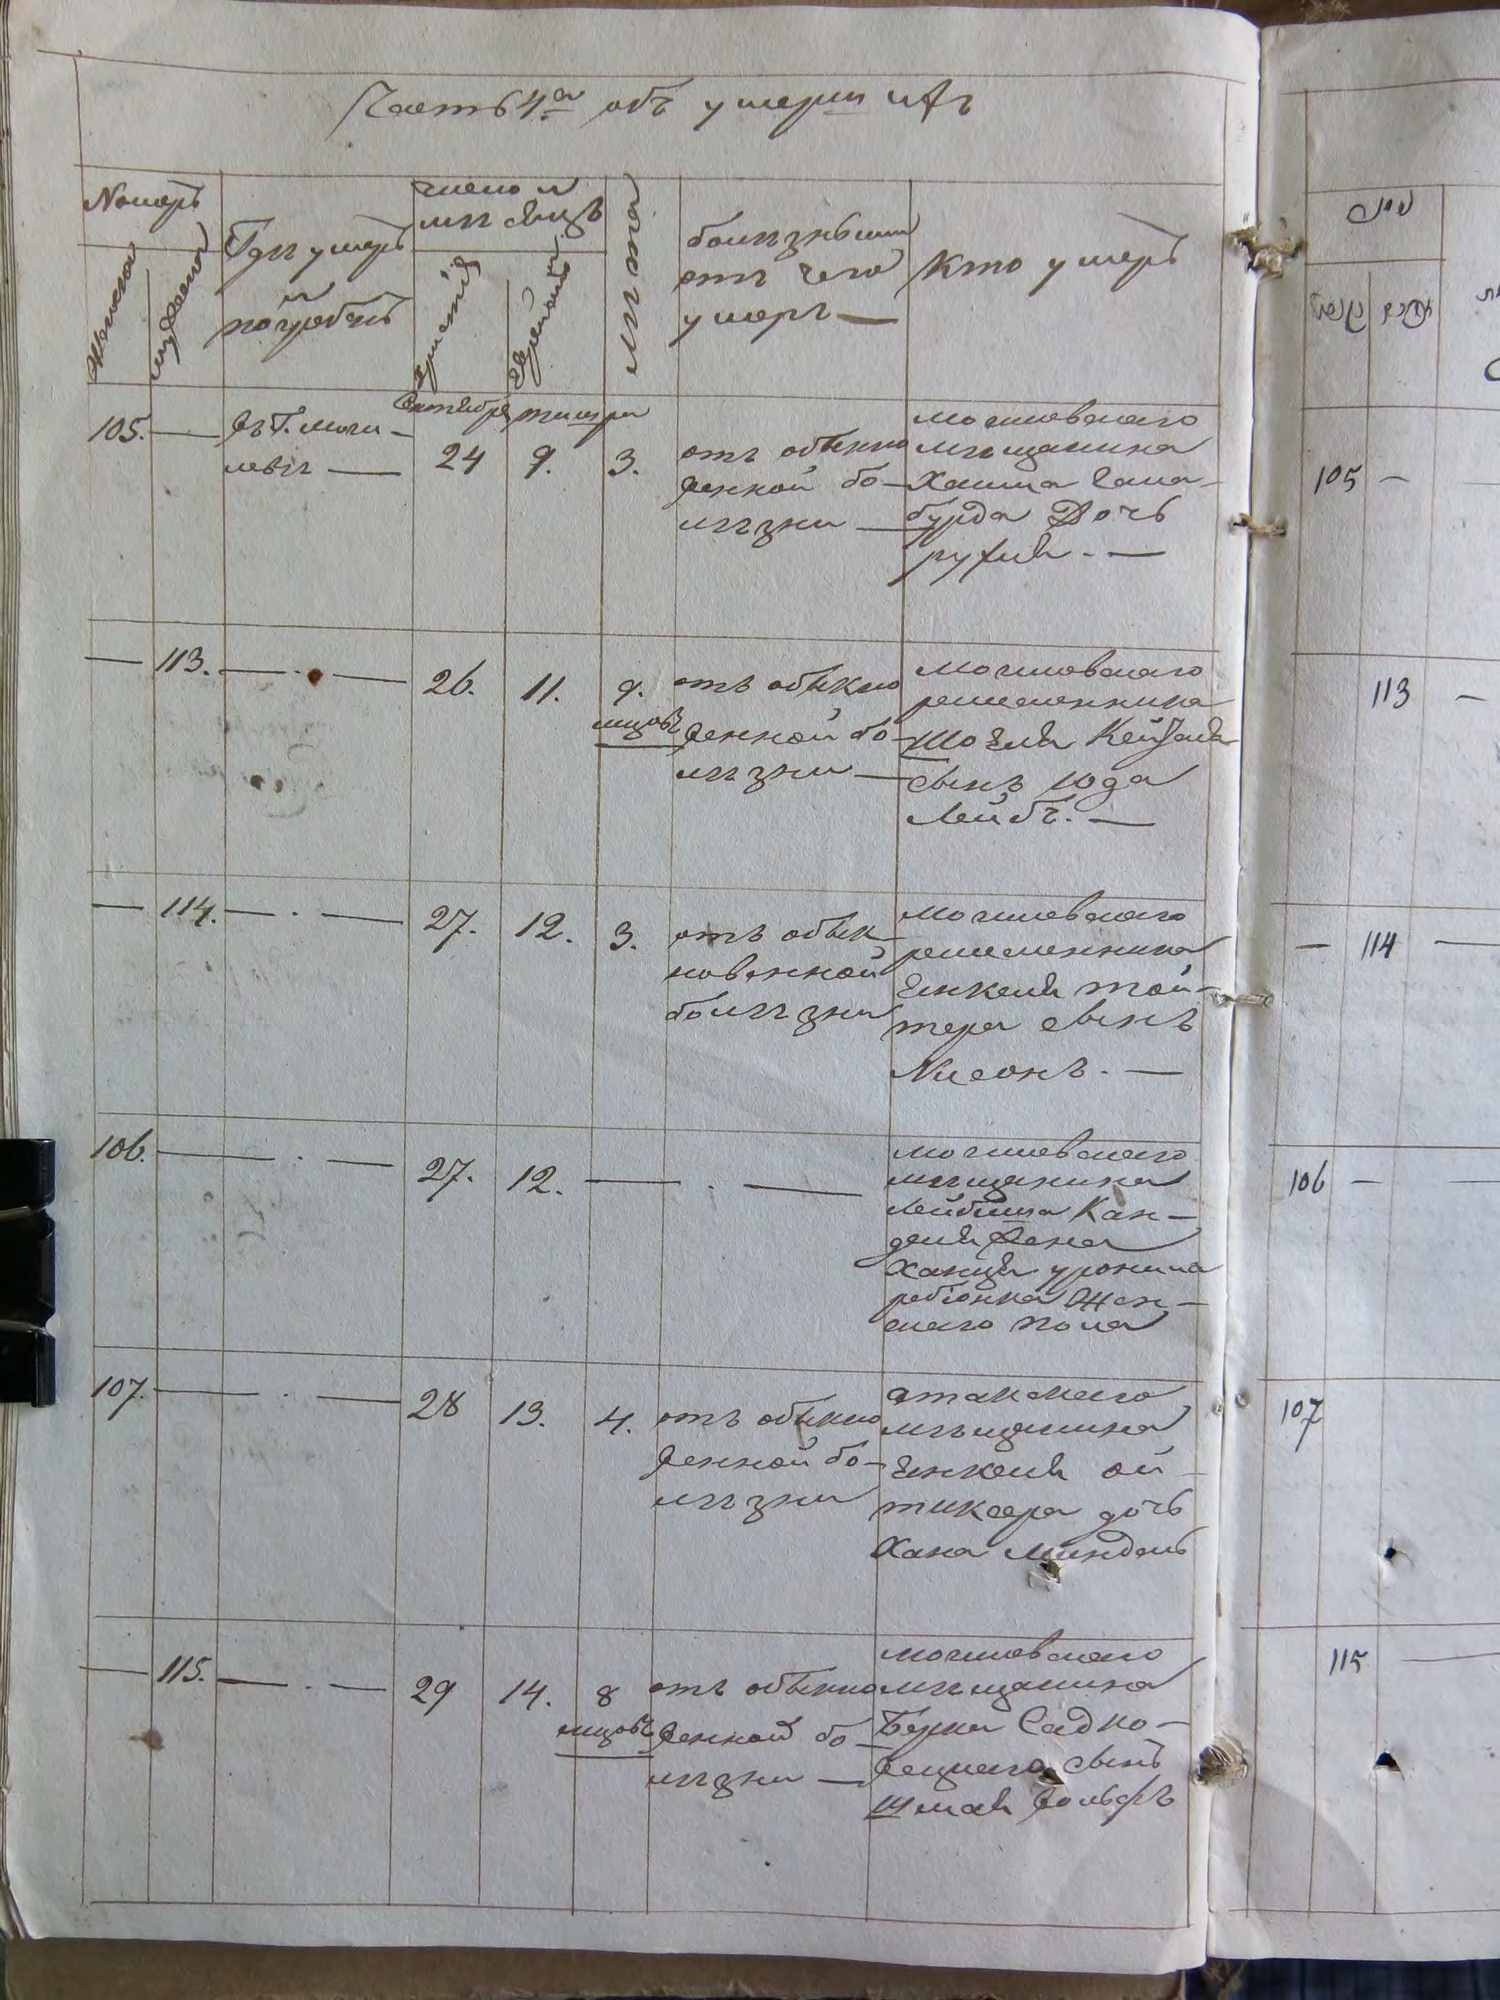 Часть 4а объ умершихъ
Номеръ
женска
мужеска
Гдѣ умеръ
погребенъ
число и
мѣсяцъ
христіа
еврейски
Лѣта
болезнь или
отъ чего
умеръ —
Кто умеръ
105. — въ Г. моги-
левѣ —
Сентября тишри
24 9. 3.
отъ обыкно
венной бо-
лѣзни —
могилевскаго
мѣщанина
Хаима
бурда Дочь
рухля. —
— 113. — . — 26. 11. 9.
мцовъ
отъ обыкно
венной бо-
лѣзни —
могилевскаго
ремесленника
сынъ Юда
Лейбъ. —
— 114. — . — 27. 12. 3.
отъ обык-
новенной
болѣзни
могилевскаго
ремесленника
Янкеля
тера сынъ
Нисонъ. —
106. — . — 27. 12. — . —
могилевскаго
мѣщанина
Лейбиша Кан-
деля жена
Ханця уронила
ребіонка жен-
скаго пола
107. — . — 28 13. 4.
отъ обыкно
венной бо-
лѣзни
атакскаго
мѣщанина
Янкеля ой-
тиксера дочь
Хана Миндель
— 115. — . — 29 14. 8
мцовъ
отъ обыкно
венной бо-
лѣзни —
могилевскаго
мѣщанина
Берка Садко-
вецкаго сынъ
Шмая Вольфъ
105 —
113 —
— 114 —
106 — —
107
115 —